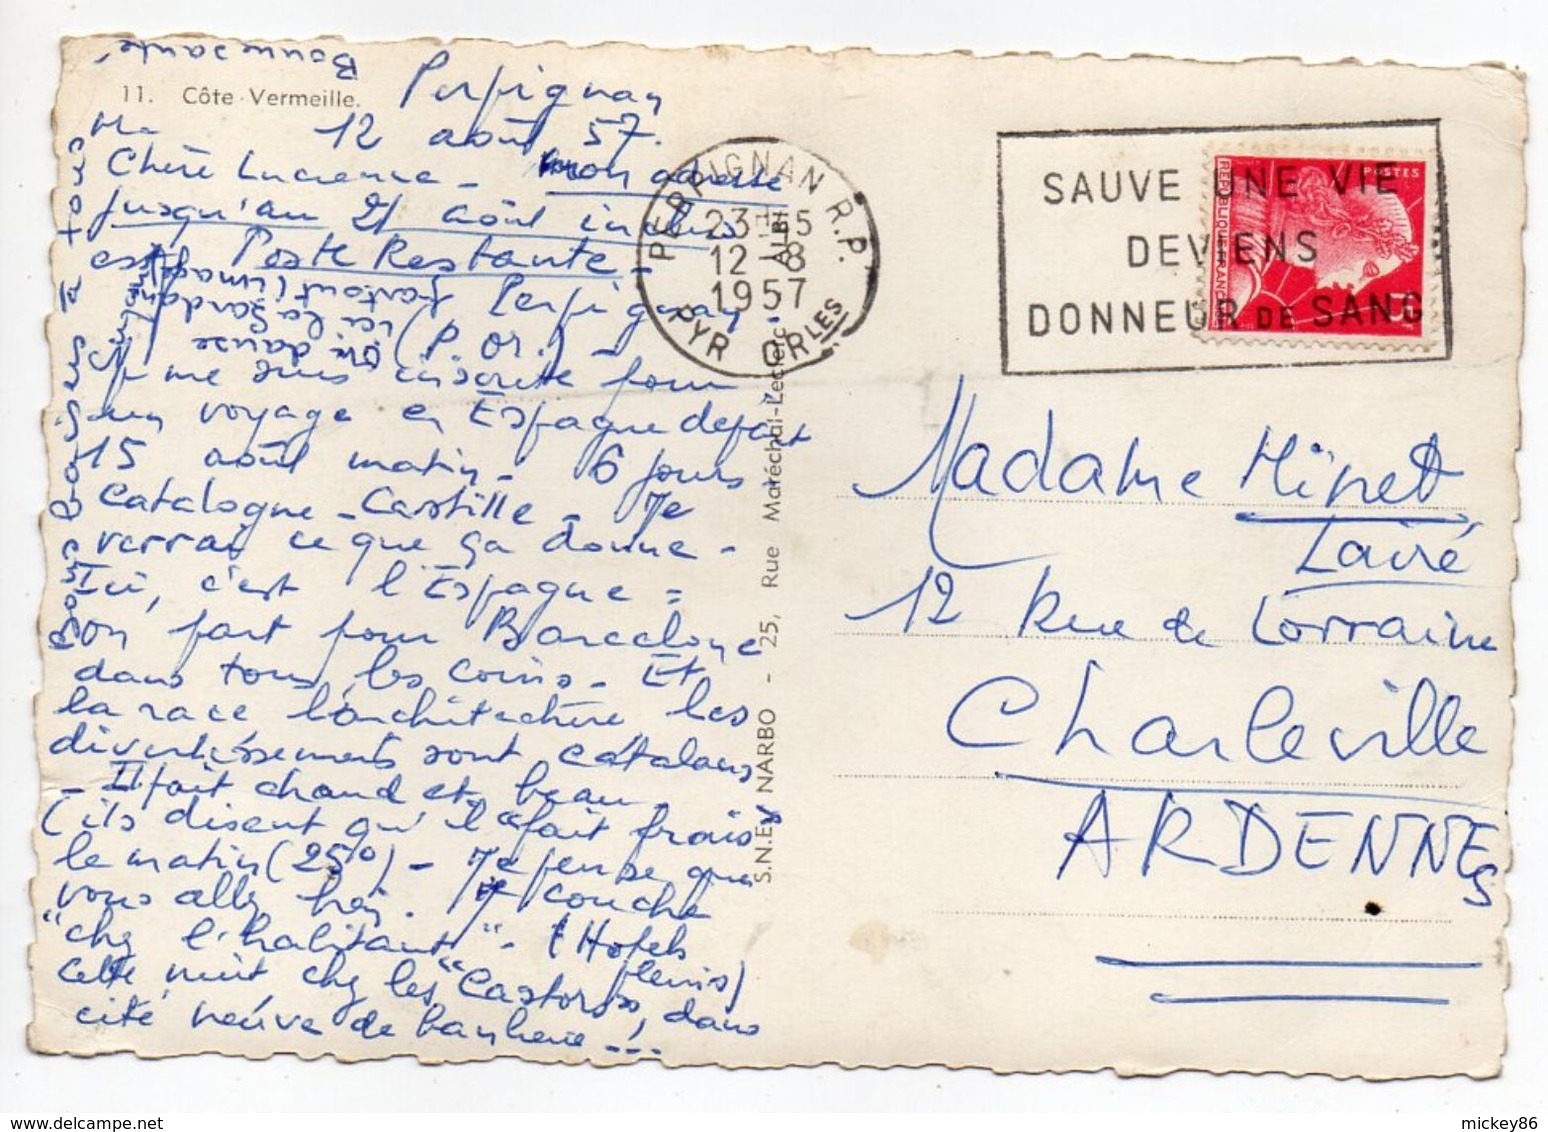 Bonne santé
11. Côte Vermeille.
Perpignan
12 août 57.
Ma
Chère Lucienne - mon adresse
jusqu'au 21 août inclus
est Poste Restante -
Perpignan
(P. Or.) -
On danse
ici la Sardane
partout (image
Je me suis inscrite pour
un voyage en Espagne départ
15 août matin - 6 jours
Catalogne - Castille - Je
verrai ce que ça donne -
Ici, c'est l'Espagne =
on part pour Barcelone
dans tous les coins - Et
la race l'architecture les
divertissements sont catalans
- Il fait chaud et beau
(ils disent qu'il fait frais
le matin (25°) - Je pense que
vous allez bien. Je couche
"chez l'habitant" - (Hotels
pleins)
cette nuit chez les "Castors", dans
cité neuve de banlieue ...
Bons baisers à tous
S.N.E. NARBO - 25, Rue Maréchal-Leclerc ALBI
PERPIGNAN R.P.
23H15
12-8
1957
PYR. ORLES
SAUVE UNE VIE
DEVIENS
DONNEUR DE SANG
POSTES
REPUBLIQUE FRANÇAISE
Madame Hinet
Lairé
12 Rue de Lorraine
Charleville
ARDENNES
mickey86